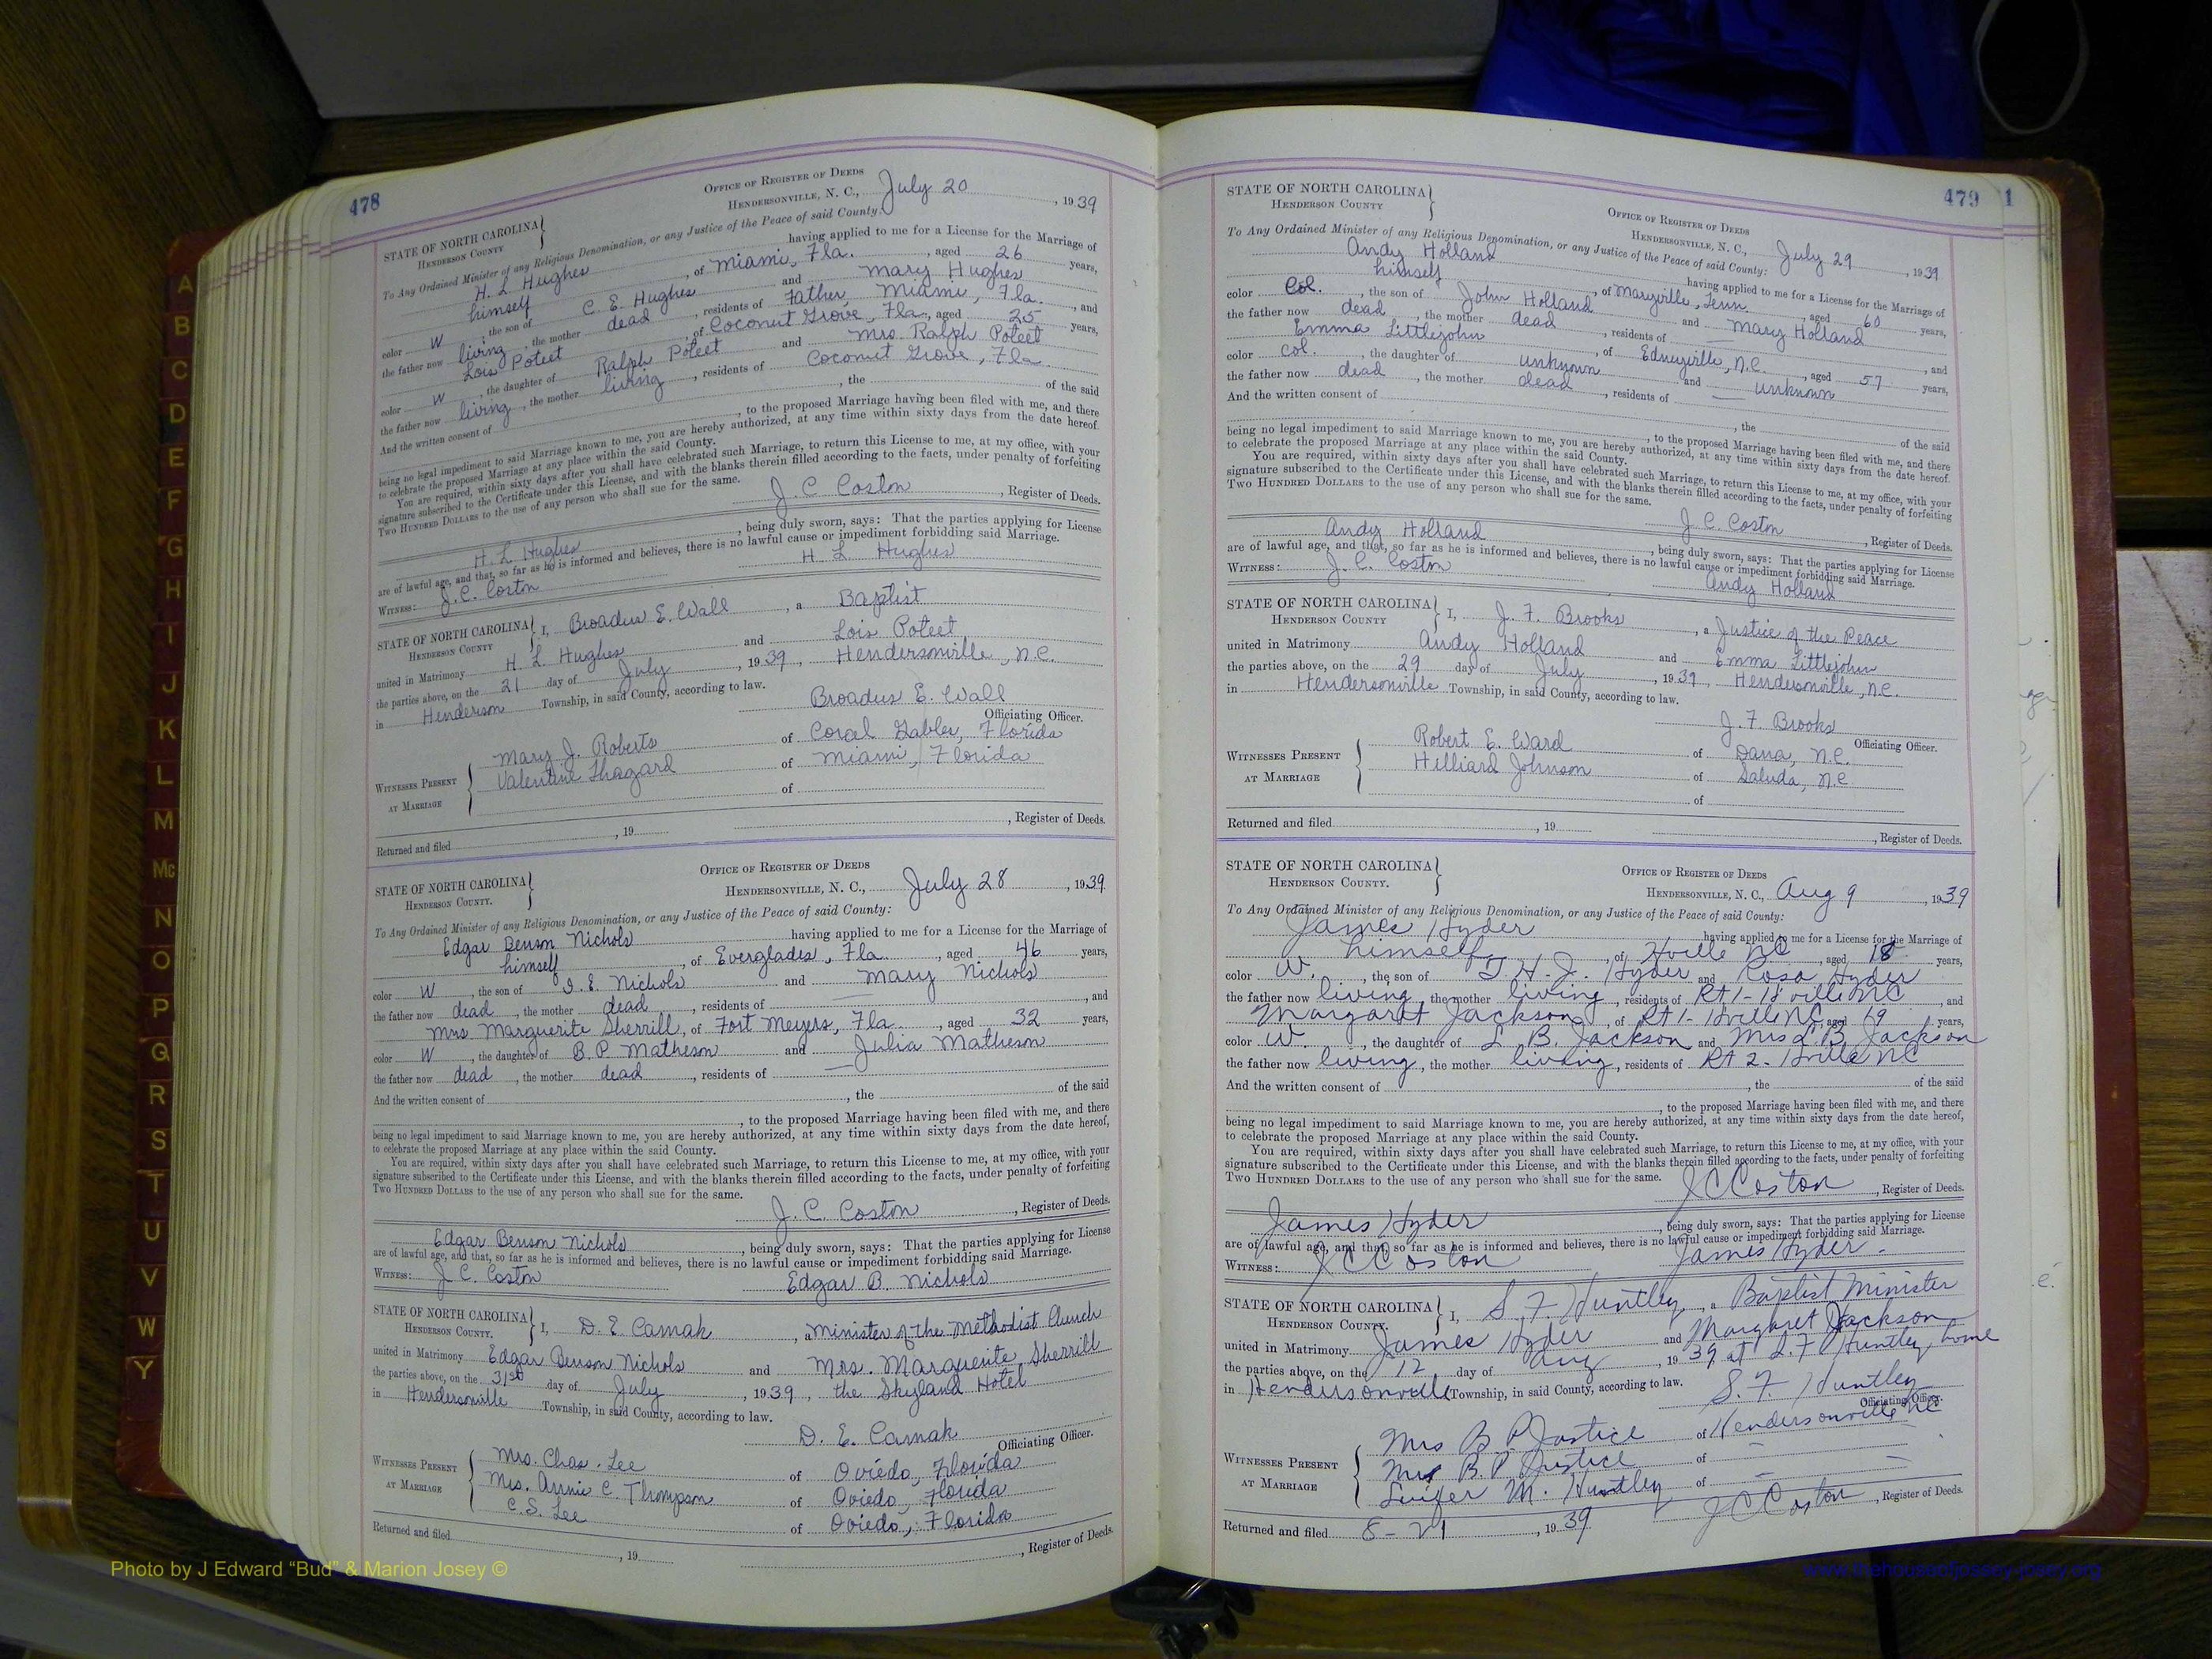 478
OFFICE OF REGISTER OF DEEDS
HENDERSONVILLE, N. C., July 20, 1939
STATE OF NORTH CAROLINA
HENDERSON COUNTY
To Any Ordained Minister of any Religious Denomination, or any Justice of the Peace of said County:
H. L. Hughes having applied to me for a License for the Marriage of
himself, of Miami, Fla., aged 26 years,
color W, the son of C. E. Hughes and Mary Hughes
the father now living, the mother dead, residents of Father, Miami, Fla., and
Lois Poteet, of Coconut Grove, Fla., aged 25 years,
color W, the daughter of Ralph Poteet and Mrs. Ralph Poteet
the father now living, the mother living, residents of Coconut Grove, Fla
And the written consent of , the of the said
, to the proposed Marriage having been filed with me, and there
being no legal impediment to said Marriage known to me, you are hereby authorized, at any time within sixty days from the date hereof
to celebrate the proposed Marriage at any place within the said County.
You are required, within sixty days after you shall have celebrated such Marriage, to return this License to me, at my office, with your
signature subscribed to the Certificate under this License, and with the blanks therein filled according to the facts, under penalty of forfeiting
TWO HUNDRED DOLLARS to the use of any person who shall sue for the same.
J. C Coston, Register of Deeds.
H. L Hughes, being duly sworn, says: That the parties applying for License
are of lawful age, and that, so far as he is informed and believes, there is no lawful cause or impediment forbidding said Marriage.
WITNESS: J. C. Coston H. L Hughes
STATE OF NORTH CAROLINA
HENDERSON COUNTY
I, Broadus E. Wall, a Baptist
united in Matrimony H. L Hughes and Lois Poteet
the parties above, on the 21 day of July, 1939, Hendersonville, N.C.
in Henderson Township, in said County, according to law.
Broadus E. Wall
Officiating Officer.
WITNESSES PRESENT
AT MARRIAGE
Mary J. Roberts of Coral Gables, Florida
Valentine Thagard of Miami, Florida
of
Returned and filed , 19 , Register of Deeds.
OFFICE OF REGISTER OF DEEDS
STATE OF NORTH CAROLINA
HENDERSON COUNTY.
HENDERSONVILLE, N. C., July 28, 1939
To Any Ordained Minister of any Religious Denomination, or any Justice of the Peace of said County:
Edgar Benson Nichols having applied to me for a License for the Marriage of
himself, of Everglades, Fla., aged 46 years,
color W, the son of E. Nichols and Mary Nichols
the father now dead, the mother dead, residents of —, and
Mrs Marguerite Sherrill, of Fort Meyers, Fla., aged 32 years,
color W, the daughter of B. P Matheson and Julia Matheson
the father now dead, the mother dead, residents of —
And the written consent of , the of the said
, to the proposed Marriage having been filed with me, and there
being no legal impediment to said Marriage known to me, you are hereby authorized, at any time within sixty days from the date hereof,
to celebrate the proposed Marriage at any place within the said County.
You are required, within sixty days after you shall have celebrated such Marriage, to return this License to me, at my office, with your
signature subscribed to the Certificate under this License, and with the blanks therein filled according to the facts, under penalty of forfeiting
TWO HUNDRED DOLLARS to the use of any person who shall sue for the same.
J. C. Coston, Register of Deeds.
Edgar Benson Nichols, being duly sworn, says: That the parties applying for License
are of lawful age, and that, so far as he is informed and believes, there is no lawful cause or impediment forbidding said Marriage.
WITNESS: J C. Coston Edgar B. Nichols
STATE OF NORTH CAROLINA
HENDERSON COUNTY.
I, D. E. Camak, a Minister of the Methodist Church
united in Matrimony Edgar Benson Nichols and Mrs. Marguerite Sherrill
the parties above, on the 31st day of July, 1939, the Skyland Hotel
in Hendersonville Township, in said County, according to law.
D. E. Camak
Officiating Officer.
WITNESSES PRESENT
AT MARRIAGE
Mrs. Chas. Lee of Oviedo, Florida
Mrs. Annie C. Thompson of Oviedo, Florida
C. S. Lee of Oviedo, Florida
Returned and filed , 19 , Register of Deeds.
479 1
STATE OF NORTH CAROLINA
HENDERSON COUNTY
OFFICE OF REGISTER OF DEEDS
HENDERSONVILLE, N. C., July 29, 1939
To Any Ordained Minister of any Religious Denomination, or any Justice of the Peace of said County:
Andy Holland having applied to me for a License for the Marriage of
himself, of Maryville, Tenn, aged 60 years,
color Col., the son of John Holland and Mary Holland
the father now dead, the mother dead, residents of —, and
Emma Littlejohn, of Edneyville, N.C., aged 57 years,
color col., the daughter of unknown and unknown
the father now dead, the mother dead, residents of —
And the written consent of , the of the said
, to the proposed Marriage having been filed with me, and there
being no legal impediment to said Marriage known to me, you are hereby authorized, at any time within sixty days from the date hereof
to celebrate the proposed Marriage at any place within the said County.
You are required, within sixty days after you shall have celebrated such Marriage, to return this License to me, at my office, with your
signature subscribed to the Certificate under this License, and with the blanks therein filled according to the facts, under penalty of forfeiting
TWO HUNDRED DOLLARS to the use of any person who shall sue for the same.
J. C. Coston, Register of Deeds.
Andy Holland, being duly sworn, says: That the parties applying for License
are of lawful age, and that, so far as he is informed and believes, there is no lawful cause or impediment forbidding said Marriage.
WITNESS: J. C. Coston Andy Holland
STATE OF NORTH CAROLINA
HENDERSON COUNTY
I, J. F. Brooks, a Justice of the Peace
united in Matrimony Andy Holland and Emma Littlejohn
the parties above, on the 29 day of July, 1939, Hendersonville, N.C.
in Hendersonville Township, in said County, according to law.
J. F. Brooks
Officiating Officer.
WITNESSES PRESENT
AT MARRIAGE
Robert E. Ward of Dana, N.C.
Hilliard Johnson of Saluda, N.C
of
Returned and filed , 19 , Register of Deeds.
STATE OF NORTH CAROLINA
HENDERSON COUNTY.
OFFICE OF REGISTER OF DEEDS
HENDERSONVILLE, N. C., Aug 9, 1939
To Any Ordained Minister of any Religious Denomination, or any Justice of the Peace of said County:
James Hyder having applied to me for a License for the Marriage of
himself, of Hville NC, aged 18 years,
color W., the son of H. J. Hyder and Rosa Hyder
the father now living, the mother living, residents of Rt 1 - Hville NC, and
Margaret Jackson, of Rt 1 - Hville NC, aged 19 years,
color W., the daughter of L. B. Jackson and Mrs L. B. Jackson
the father now living, the mother living, residents of Rt 2 - Hville NC
And the written consent of , the of the said
, to the proposed Marriage having been filed with me, and there
being no legal impediment to said Marriage known to me, you are hereby authorized, at any time within sixty days from the date hereof,
to celebrate the proposed Marriage at any place within the said County.
You are required, within sixty days after you shall have celebrated such Marriage, to return this License to me, at my office, with your
signature subscribed to the Certificate under this License, and with the blanks therein filled according to the facts, under penalty of forfeiting
TWO HUNDRED DOLLARS to the use of any person who shall sue for the same.
J C Coston, Register of Deeds.
James Hyder, being duly sworn, says: That the parties applying for License
are of lawful age, and that, so far as he is informed and believes, there is no lawful cause or impediment forbidding said Marriage.
WITNESS: J C Coston James Hyder
STATE OF NORTH CAROLINA
HENDERSON COUNTY.
I, S. F. Huntley, a Baptist Minister
united in Matrimony James Hyder and Margaret Jackson
the parties above, on the 12 day of Aug, 1939 at S. F Huntley home
in Hendersonville Township, in said County, according to law.
S. F. Huntley
Officiating Officer.
WITNESSES PRESENT
AT MARRIAGE
Mrs B P Justice of Hendersonville NC
B. P. Justice of —
M. Huntley of —
Returned and filed 8 - 21, 1939 J C Coston, Register of Deeds.
A
B
C
D
E
F
G
H
I
J
K
L
M
Mc
N
O
P
Q
R
S
T
U
V
W
Y
Photo by J Edward “Bud” & Marion Josey ©
www.thehouseofjossey-josey.org